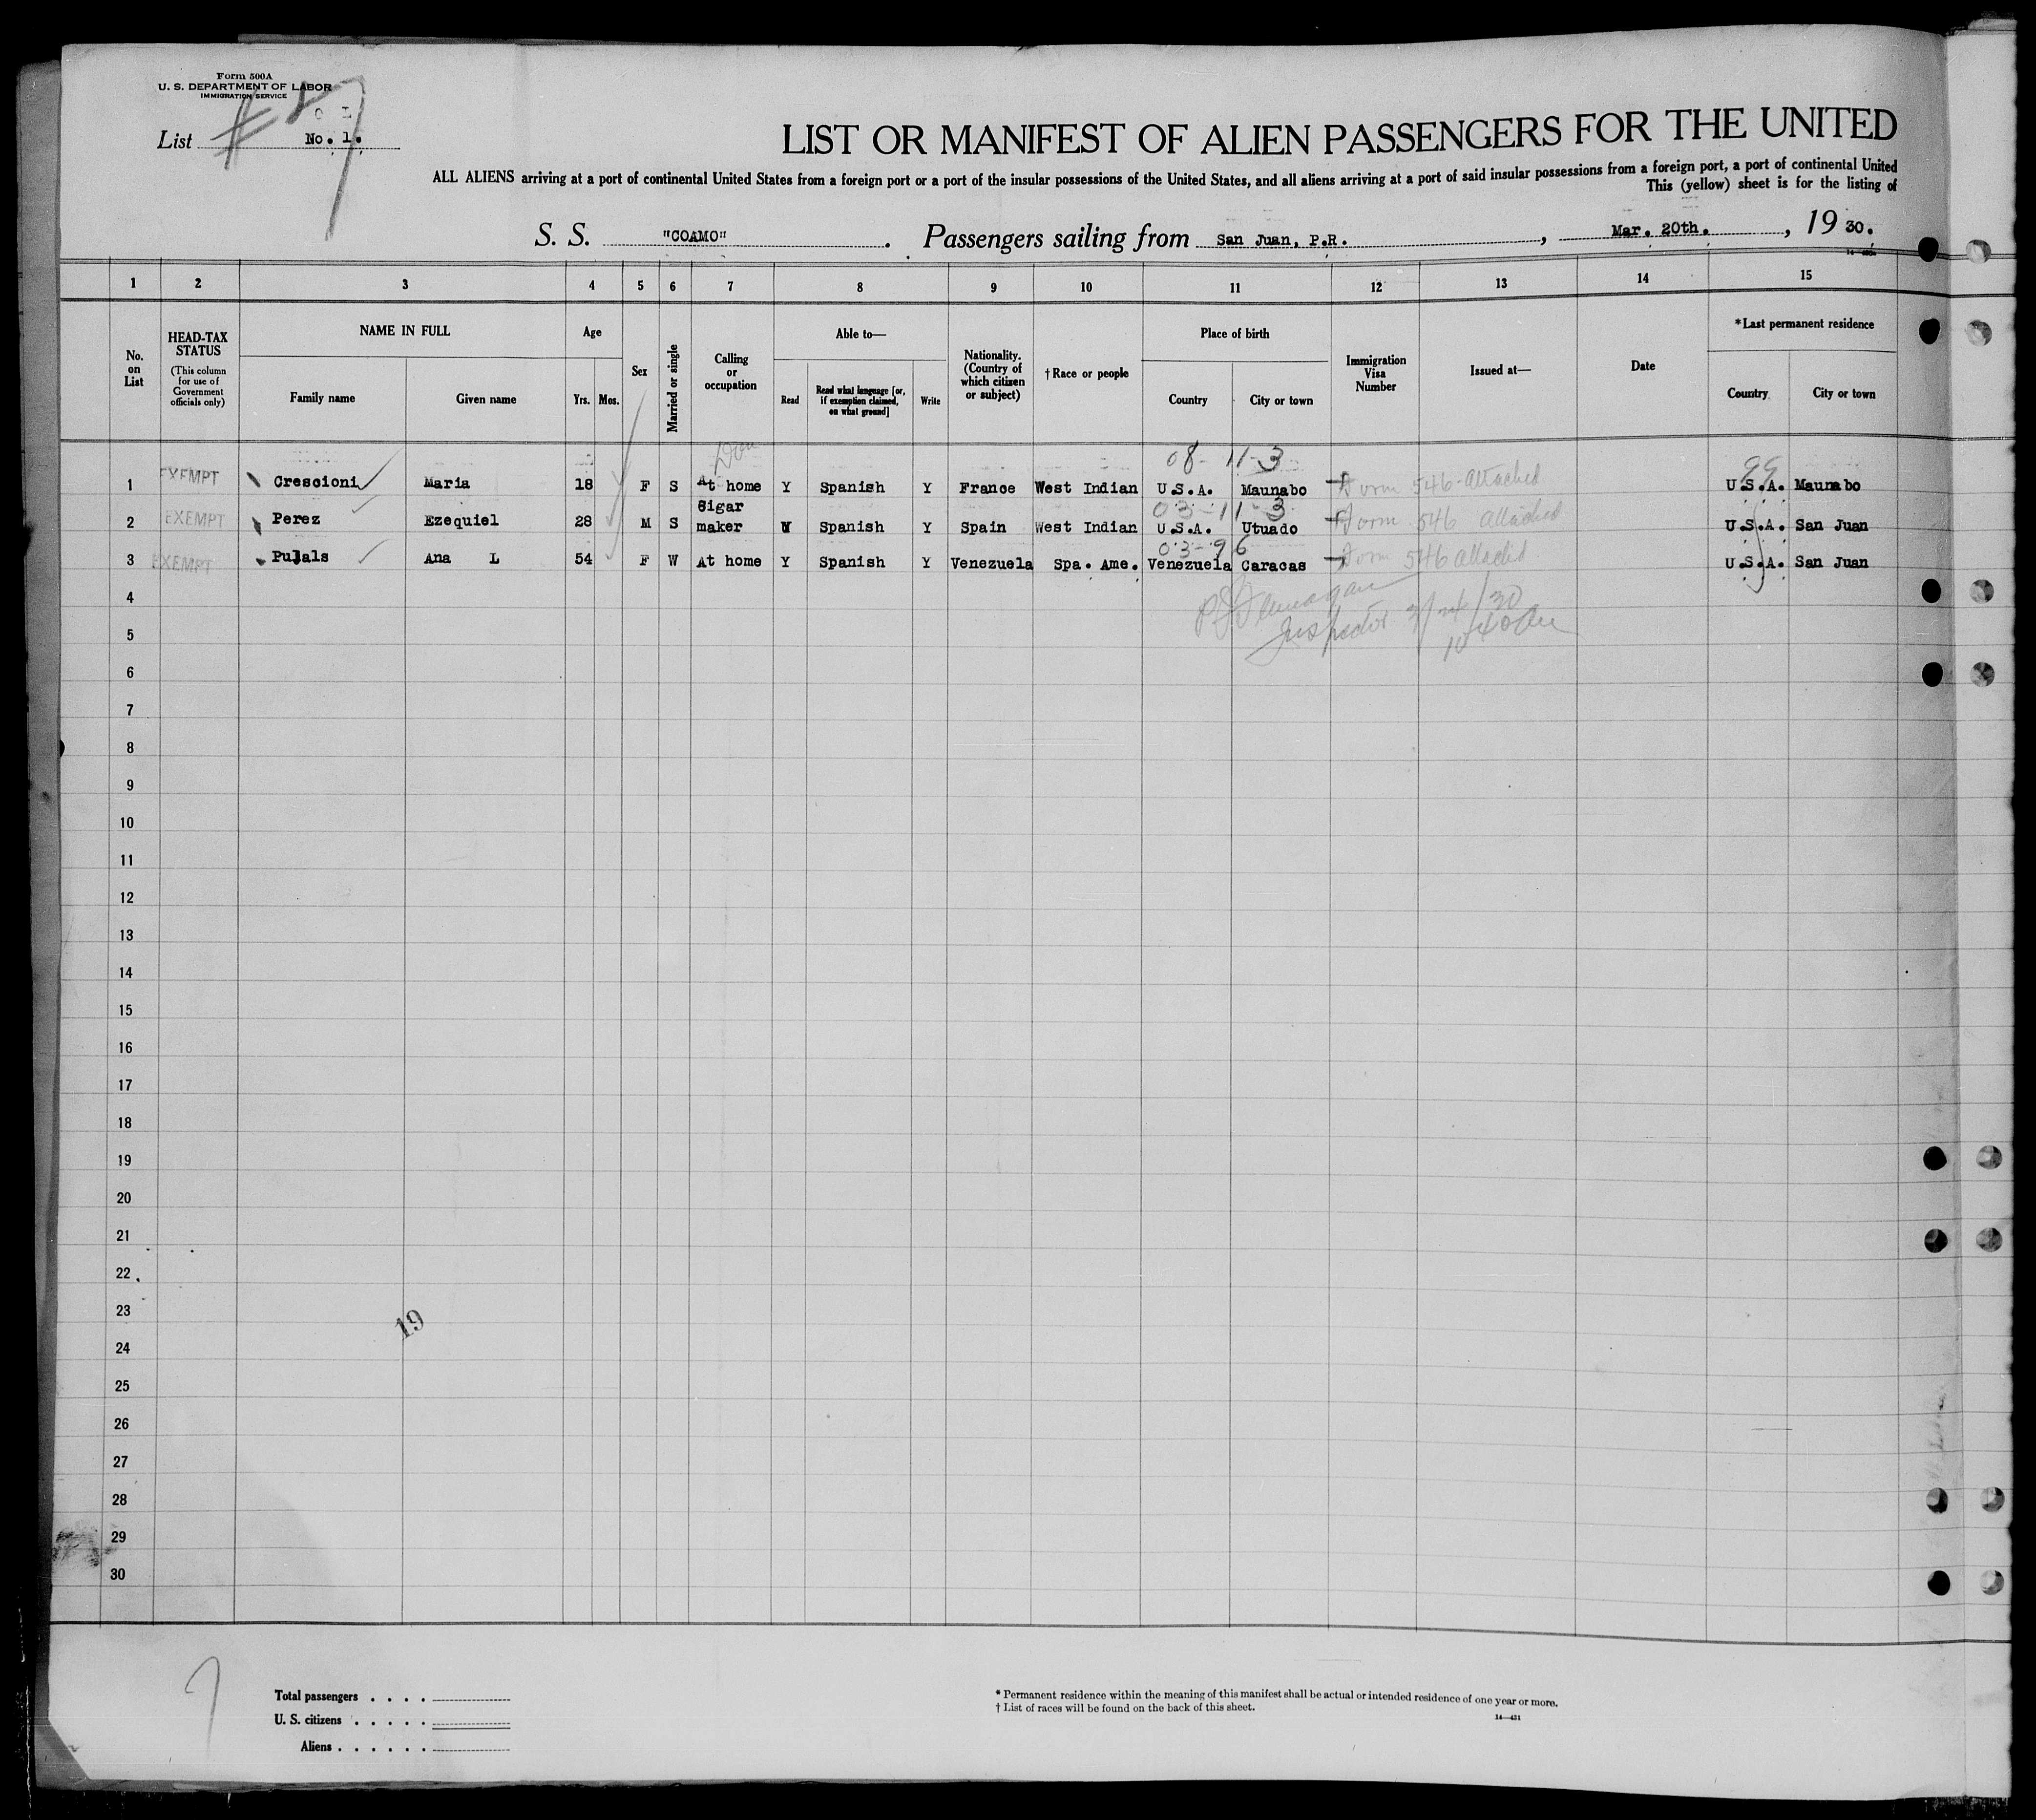 Form 500A
U. S. DEPARTMENT OF LABOR
IMMIGRATION SERVICE
List No. 1.
LIST OR MANIFEST OF ALIEN PASSENGERS FOR THE UNITED
ALL ALIENS arriving at a port of continental United States from a foreign port or a port of the insular possessions of the United States, and all aliens arriving at a port of said insular possessions from a foreign port, a port of continental United
This (yellow) sheet is for the listing of
S. S. "COAMO". Passengers sailing from San Juan, P.R., Mar. 20th., 19 30.
1 2 3 4 5 6 7 8 9 10 11 12 13 14 15
No. on List
HEAD-TAX STATUS
(This column for use of Government officials only)
NAME IN FULL
Family name
Given name
Age
Yrs. Mos.
Sex
Married or single
Calling or occupation
Able to—
Read
Read what language [or, if exemption claimed, on what ground]
Write
Nationality. (Country of which citizen or subject)
† Race or people
Place of birth
Country
City or town
Immigration Visa Number
Issued at—
Date
*Last permanent residence
Country
City or town
08-11-3 99
1 EXEMPT Crescioni Maria 18 F S At home Y Spanish Y France West Indian U.S.A. Maunabo Form 546-attached U.S.A. Maunabo
03-11-3
2 EXEMPT Perez Ezequiel 28 M S Cigar maker Y Spanish Y Spain West Indian U.S.A. Utuado Form 546 attached U.S.A. San Juan
03-96
3 EXEMPT Pujals Ana L 54 F W At home Y Spanish Y Venezuela Spa. Ame. Venezuela Caracas Form 546 attached U.S.A. San Juan
4
Inspector 3/24/30
5
10 40 am
6
7
8
9
10
11
12
13
14
15
16
17
18
19
20
21
22
23
19
24
25
26
27
28
29
30
Total passengers . . . .
U. S. citizens . . . . .
Aliens . . . . . .
* Permanent residence within the meaning of this manifest shall be actual or intended residence of one year or more.
† List of races will be found on the back of this sheet.
14—431